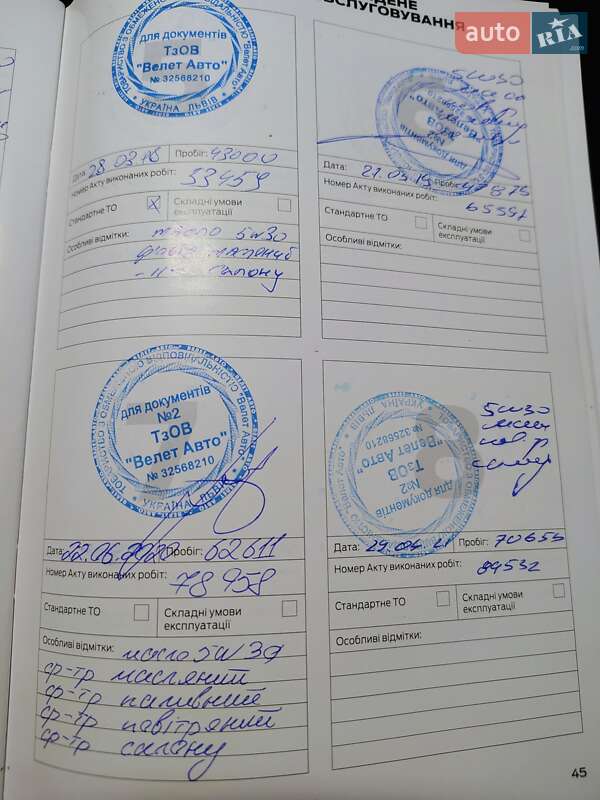 ДЕНЕ
ОБСЛУГОВУВАННЯ
auto RIA.com
для документів
ТзОВ
"Велет Авто"
№ 32568210
УКРАЇНА ЛЬВІВ
Дата: 28.03.18 Пробіг: 43000
Номер Акту виконаних робіт: 53459
Стандартне ТО ☒ Складні умови експлуатації ☐
Особливі відмітки: масло 5w30
салону
5w30
Дата: 21.05.19 Пробіг: 47875
Номер Акту виконаних робіт:
Стандартне ТО ☐ Складні умови експлуатації ☐
Особливі відмітки:
ТОВАРИСТВО З ОБМЕЖЕНОЮ ВІДПОВІДАЛЬНІСТЮ "Велет Авто"
для документів
№2
ТзОВ
"Велет Авто"
№ 32568210
УКРАЇНА ЛЬВІВ
Дата: 22.06.2020 Пробіг: 62611
Номер Акту виконаних робіт: 78958
Стандартне ТО ☐ Складні умови експлуатації ☐
Особливі відмітки: масло 5W30
ф-тр масляний
ф-тр паливний
ф-тр повітряний
ф-тр салону
УКРАЇНА ЛЬВІВ
№ 32568210
"Велет Авто"
ТзОВ
№2
для документів
5w30
Дата: 29.04.21 Пробіг: 70655
Номер Акту виконаних робіт: 89532
Стандартне ТО ☐ Складні умови експлуатації ☐
Особливі відмітки:
45